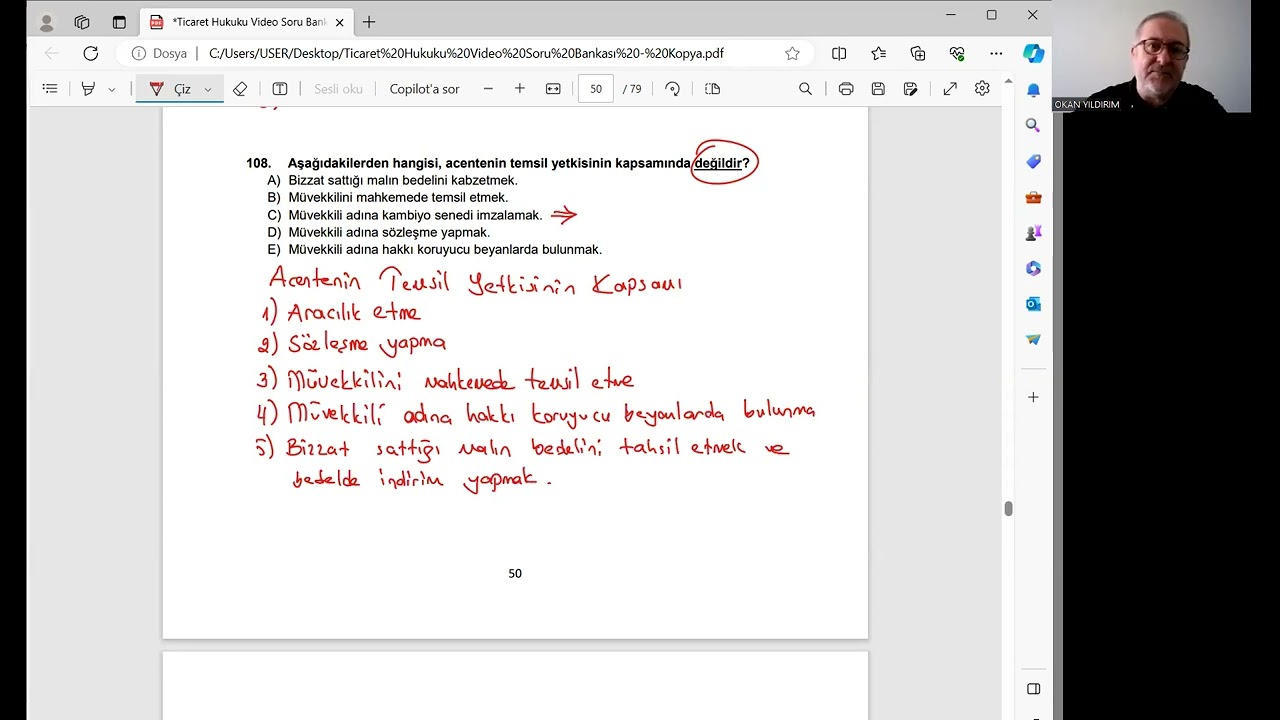 *Ticaret Hukuku Video Soru Bank
Dosya
C:/Users/USER/Desktop/Ticaret%20Hukuku%20Video%20Soru%20Bankası%20-%20Kopya.pdf
Çiz
Sesli oku
Copilot'a sor
50
/ 79
OKAN YILDIRIM
108. Aşağıdakilerden hangisi, acentenin temsil yetkisinin kapsamında değildir?
A) Bizzat sattığı malın bedelini kabzetmek.
B) Müvekkilini mahkemede temsil etmek.
C) Müvekkili adına kambiyo senedi imzalamak.
D) Müvekkili adına sözleşme yapmak.
E) Müvekkili adına hakkı koruyucu beyanlarda bulunmak.
Acentenin Temsil Yetkisinin Kapsamı
1) Aracılık etme
2) Sözleşme yapma
3) Müvekkilini mahkemede temsil etme
4) Müvekkili adına hakkı koruyucu beyanlarda bulunma
5) Bizzat sattığı malın bedelini tahsil etmek ve
bedelde indirim yapmak.
50